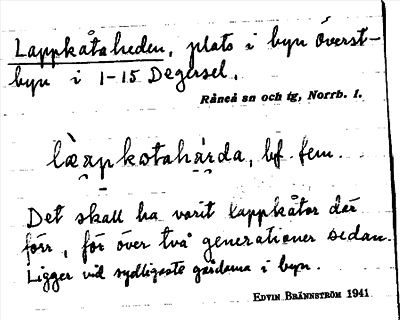 Lappkåtaheden, plats i byn Överst-
byn i 1-15 Degersel.
Råneå sn och tg, Norrb. l.
làppkotahą̀rda, bf. fem.
Det skall ha varit lappkåtor där
förr, för över två generationer sedan.
Ligger vid sydligaste gårdarna i byn.
EDVIN BRÄNNSTRÖM 1941